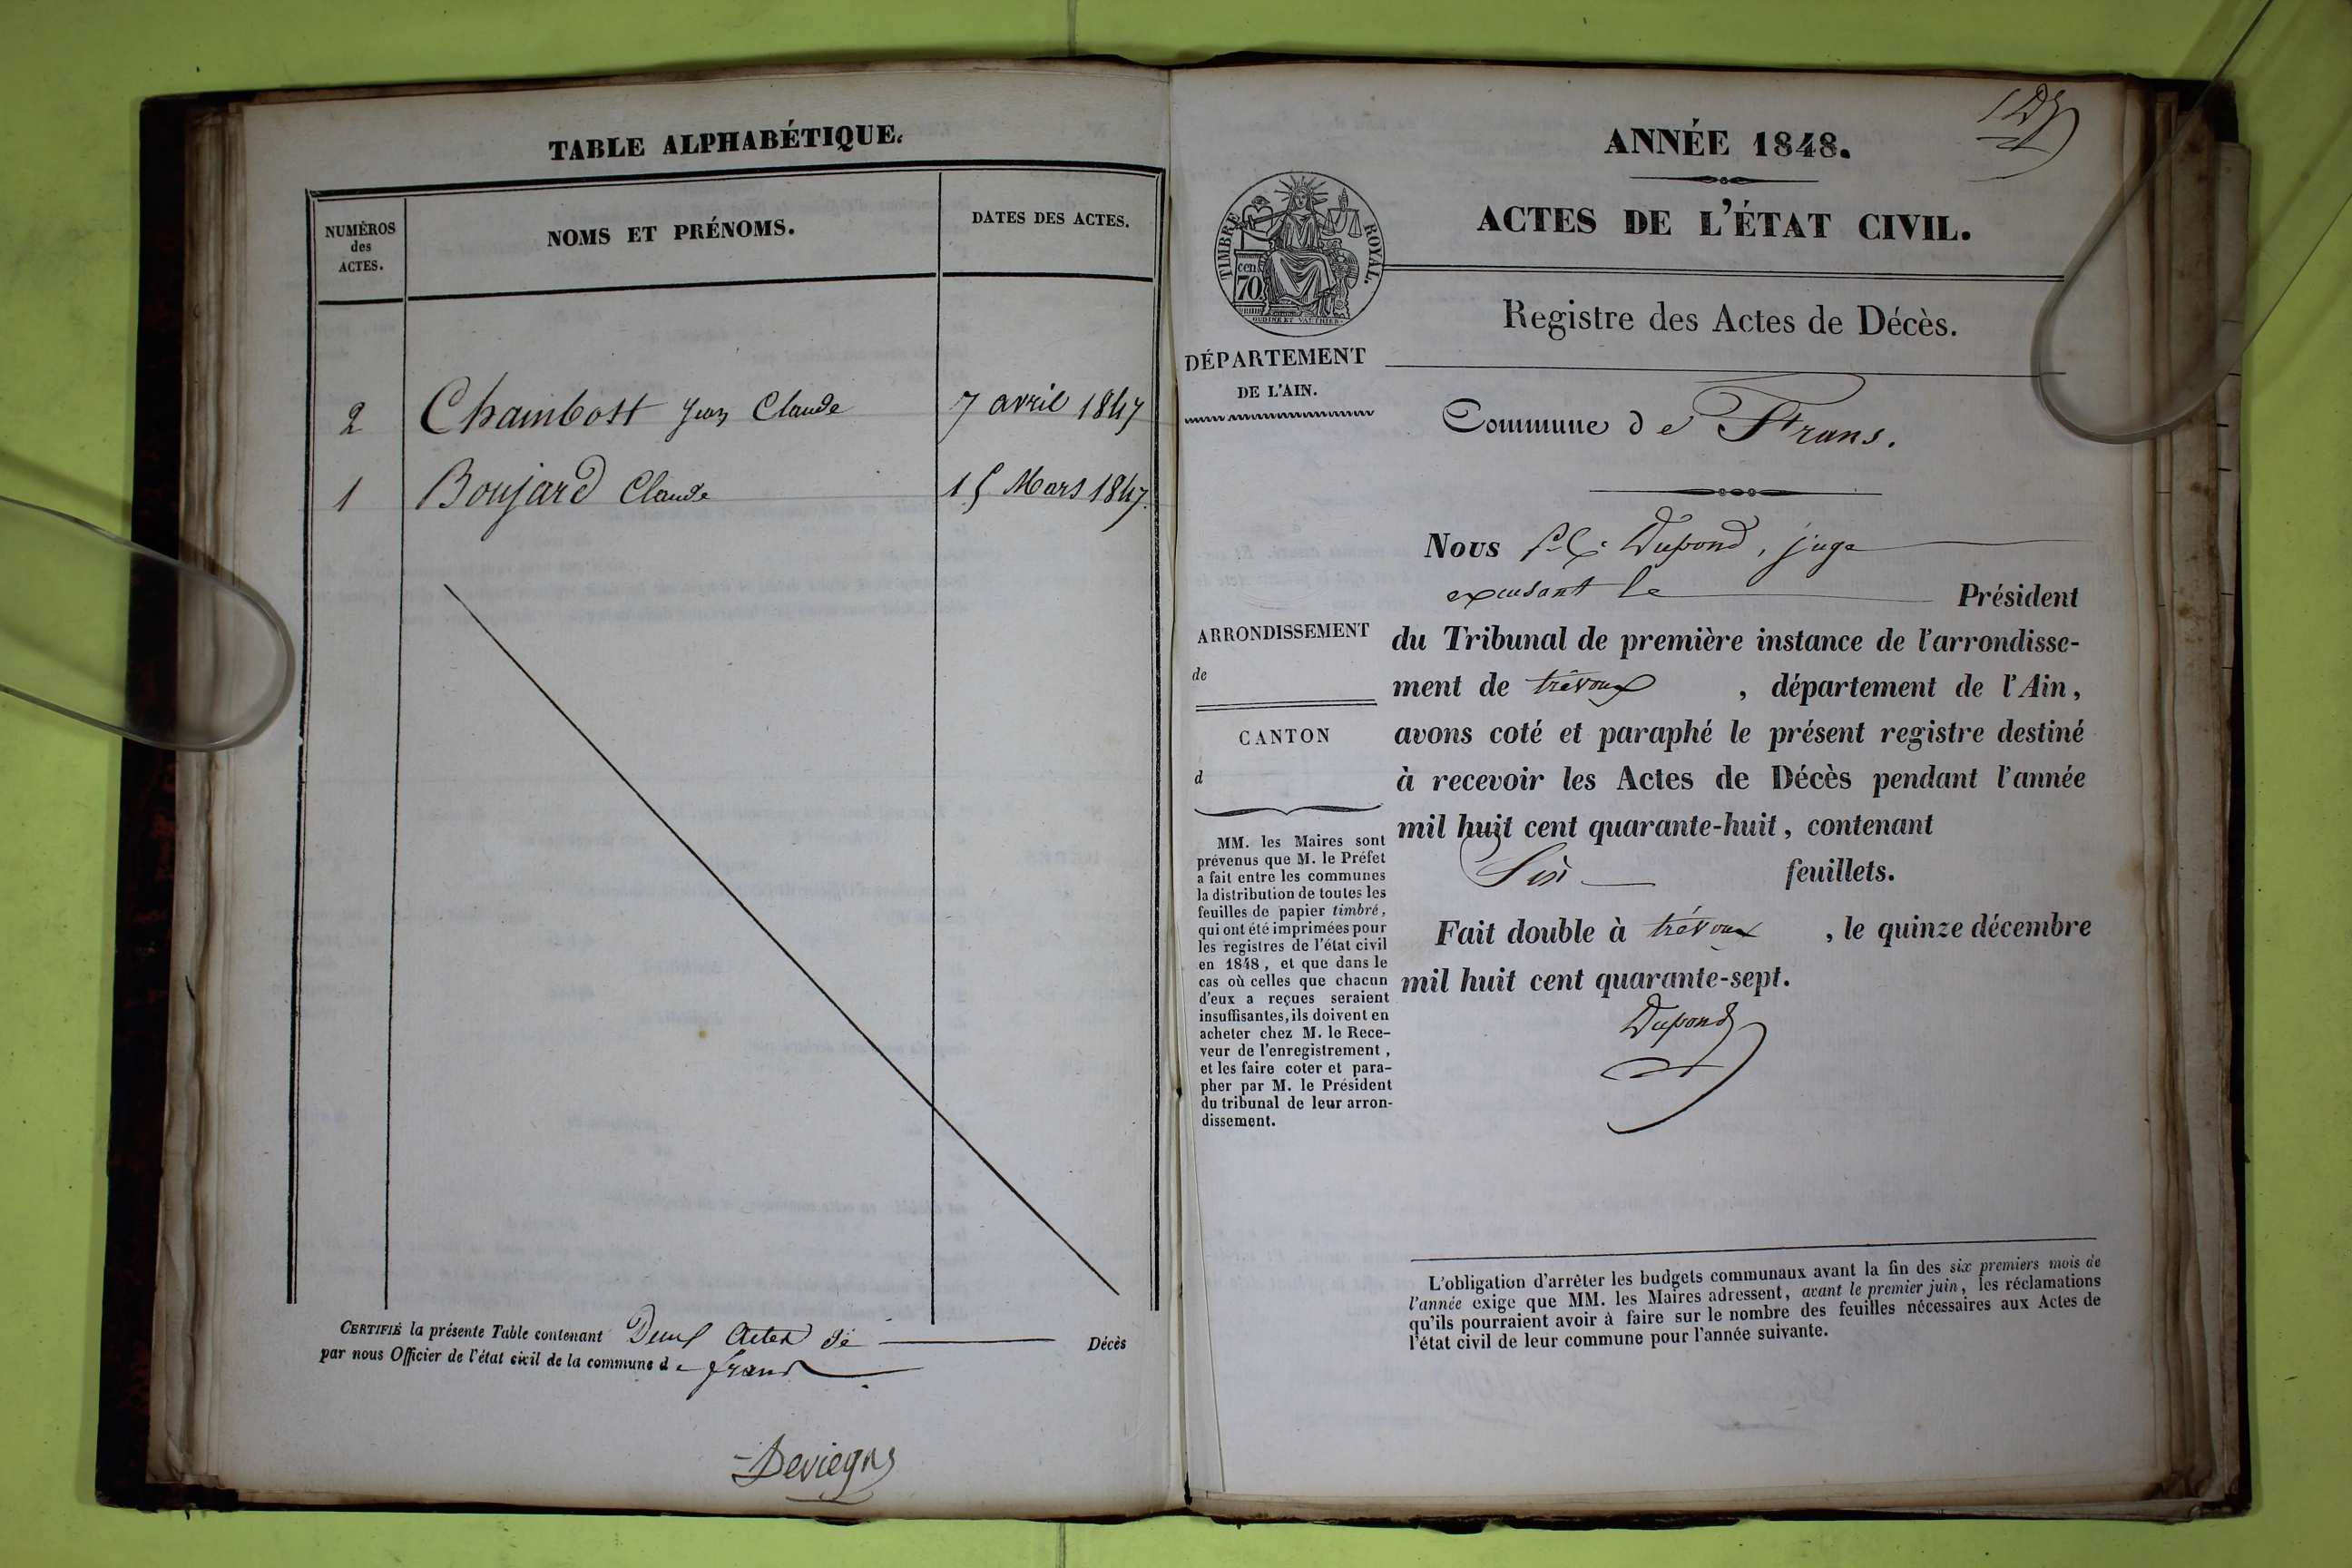 TABLE ALPHABÉTIQUE.
NUMÉROS
des
ACTES.
NOMS ET PRÉNOMS.
DATES DES ACTES.
2 Chambost Jean Claude 7 avril 1847
1 Boujard Claude 15 Mars 1847.
CERTIFIÉ la présente Table contenant Deux Actes de Décès
par nous Officier de l'état civil de la commune de frans
Deviegns
ANNÉE 1848.
ACTES DE L'ÉTAT CIVIL.
TIMBRE ROYAL.
cen.
70
Registre des Actes de Décès.
DÉPARTEMENT
DE L'AIN.
Commune de Frans.
Nous Dupond, juge
excusant le Président
du Tribunal de première instance de l'arrondisse-
ment de trévoux , département de l'Ain,
avons coté et paraphé le présent registre destiné
à recevoir les Actes de Décès pendant l'année
mil huit cent quarante-huit, contenant
Six feuillets.
Fait double à trévoux , le quinze décembre
mil huit cent quarante-sept.
Dupond
ARRONDISSEMENT
de
CANTON
d
MM. les Maires sont
prévenus que M. le Préfet
a fait entre les communes
la distribution de toutes les
feuilles de papier timbré,
qui ont été imprimées pour
les registres de l'état civil
en 1848, et que dans le
cas où celles que chacun
d'eux a reçues seraient
insuffisantes, ils doivent en
acheter chez M. le Rece-
veur de l'enregistrement,
et les faire coter et para-
pher par M. le Président
du tribunal de leur arron-
dissement.
L'obligation d'arrêter les budgets communaux avant la fin des six premiers mois de
l'année exige que MM. les Maires adressent, avant le premier juin, les réclamations
qu'ils pourraient avoir à faire sur le nombre des feuilles nécessaires aux Actes de
l'état civil de leur commune pour l'année suivante.